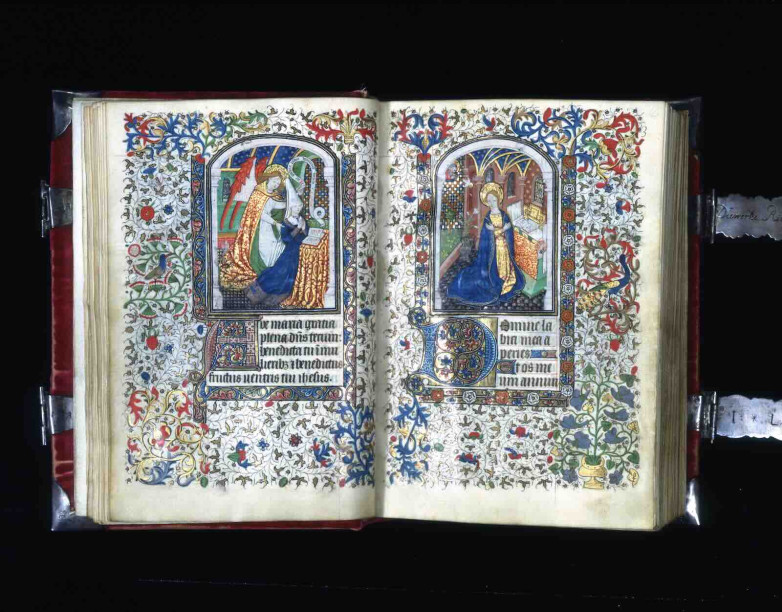 Ave maria gratia
plena dñs tecum
benedicta tu ĩ mu
lierib⁊ ⁊ benedictus
fructus ventris tui ihesus.
Domine la
bia mea a
peries
Et os me
um annun